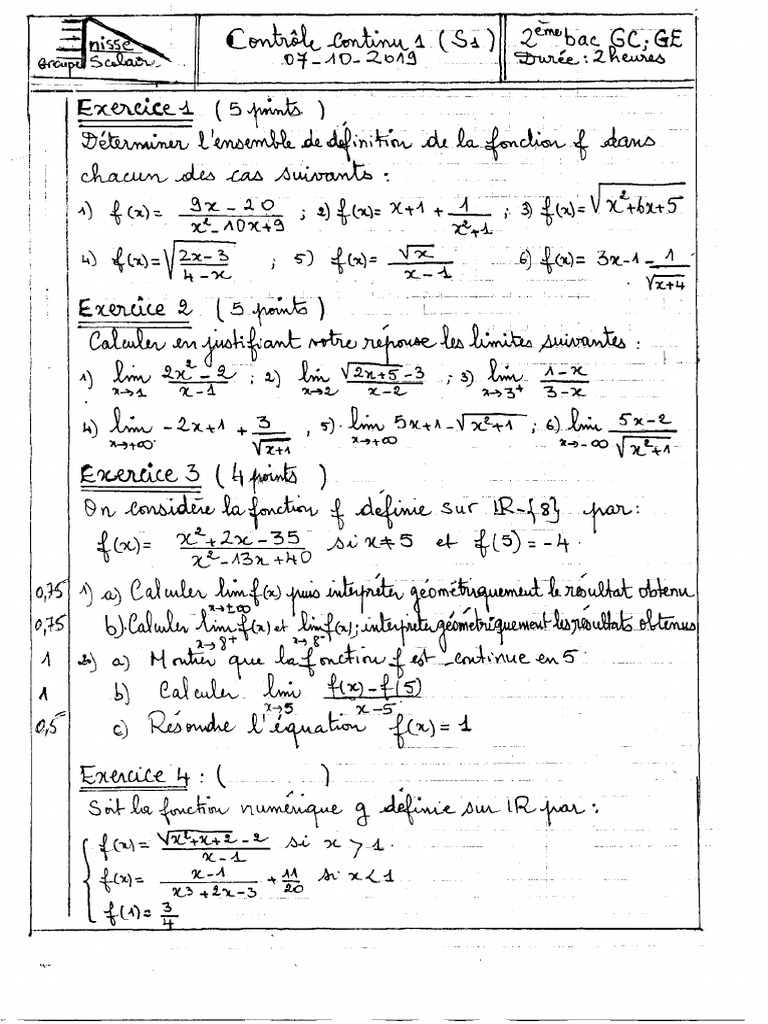 Groupe nisse Scolair
Contrôle continu 1 (S1)
07-10-2019
2ème bac GC; GE
Durée: 2 heures
Exercice 1 (5 points)
Déterminer l'ensemble de définition de la fonction f dans
chacun des cas suivants :
1) f(x) = (9x - 20)/(x² - 10x + 9) ; 2) f(x) = x + 1 + 1/(x² + 1) ; 3) f(x) = √(x² + 6x + 5)
4) f(x) = √((2x - 3)/(4 - x)) ; 5) f(x) = √x/(x - 1) 6) f(x) = 3x - 1 - 1/√(x + 4)
Exercice 2 (5 points)
Calculer en justifiant votre réponse les limites suivantes :
1) lim x→1 (2x² - 2)/(x - 1) ; 2) lim x→2 (√(2x + 5) - 3)/(x - 2) ; 3) lim x→3⁺ (1 - x)/(3 - x)
4) lim x→+∞ -2x + 1 + 3/√(x + 1) , 5) lim x→+∞ 5x + 1 - √(x² + 1) ; 6) lim x→-∞ (5x - 2)/√(x² + 1)
Exercice 3 (4 points)
On considère la fonction f définie sur IR-{8} par:
f(x) = (x² + 2x - 35)/(x² - 13x + 40) si x ≠ 5 et f(5) = -4
0,75 1) a) Calculer lim x→±∞ f(x) puis interpréter géométriquement le résultat obtenu
0,75 b) Calculer lim x→8⁺ f(x) et lim x→8⁻ f(x); interpreter géométriquement les résultats obtenus
1 2) a) Montrer que la fonction f est continue en 5
1 b) Calculer lim x→5 (f(x) - f(5))/(x - 5)
0,5 c) Résoudre l'équation f(x) = 1
Exercice 4 : ( )
Soit la fonction numérique g définie sur IR par :
f(x) = (√(x² + x + 2) - 2)/(x - 1) si x > 1
f(x) = (x - 1)/(x3 + 2x - 3) + 11/20 si x < 1
f(1) = 3/4